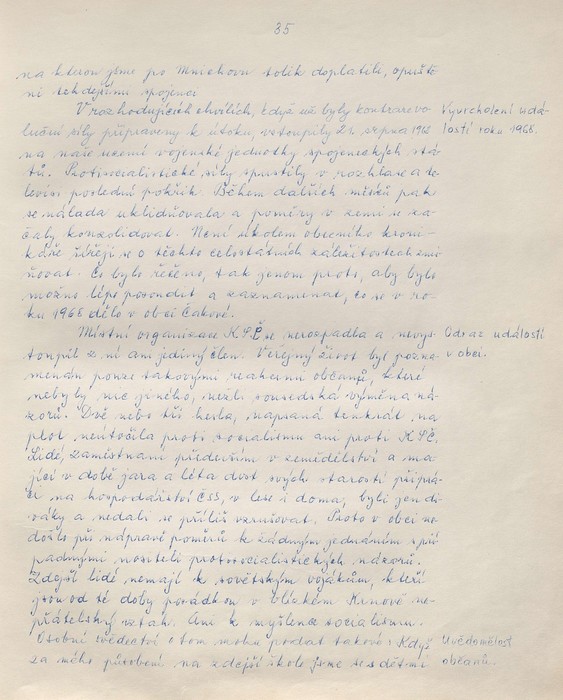 35
na kterou jsme po Mnichovu tolik doplatili, opuště
ni tehdejšími spojenci.
V rozhodujících chvílích, když už byly kontrarevo- Vyvrcholení udá-
luční síly připraveny k útoku, vstoupily 21. srpna 1968 lostí roku 1968.
na naše území vojenské jednotky spojeneckých stá-
tů. Protisocialistické síly spustily v rozhlase a te-
levisi poslední pokřik. Během dalších měsíců pak
se nálada uklidňovala a poměry v zemi se za-
čaly konsolidovat. Není úkolem obecního kroni-
káře šířeji se o těchto celostátních záležitostech zmi-
ňovat. Co bylo řečeno, tak jenom proto, aby bylo
možno lépe posoudit a zaznamenat, co se v ro-
ku 1968 dělo v obci Čakové.
Místní organizace KSČ se nerozpadla a nevys- Odraz událostí
toupil z ní ani jediný člen. Veřejný život byl pozna- v obci.
menán pouze takovými reakcemi občanů, které
nebyly nic jiného, nežli sousedská výměna ná-
zorů. Dvě nebo tři hesla, napsaná tenkrát na
plot neútočila proti socialismu ani proti KSČ.
Lidé, zaměstnaní především v zemědělství a ma-
jící v době jara a léta dost svých starostí při prá-
ci na hospodářství ČSS, v lese i doma, byli jen di-
váky a nedali se příliš vzrušovat. Proto v obci ne-
došlo při nápravě poměrů k žádným jednáním s pří-
padnými nositeli protisocialistických názorů.
Zdejší lidé nemají k sovětským vojákům, kteří
jsou od té doby posádkou v blízkém Krnově ne-
přátelský vztah. Ani k myšlence socialismu.
Osobní svědectví o tom mohu podat takové: Když Uvědomělost
za mého působení na zdejší škole jsme se s dětmi občanů.